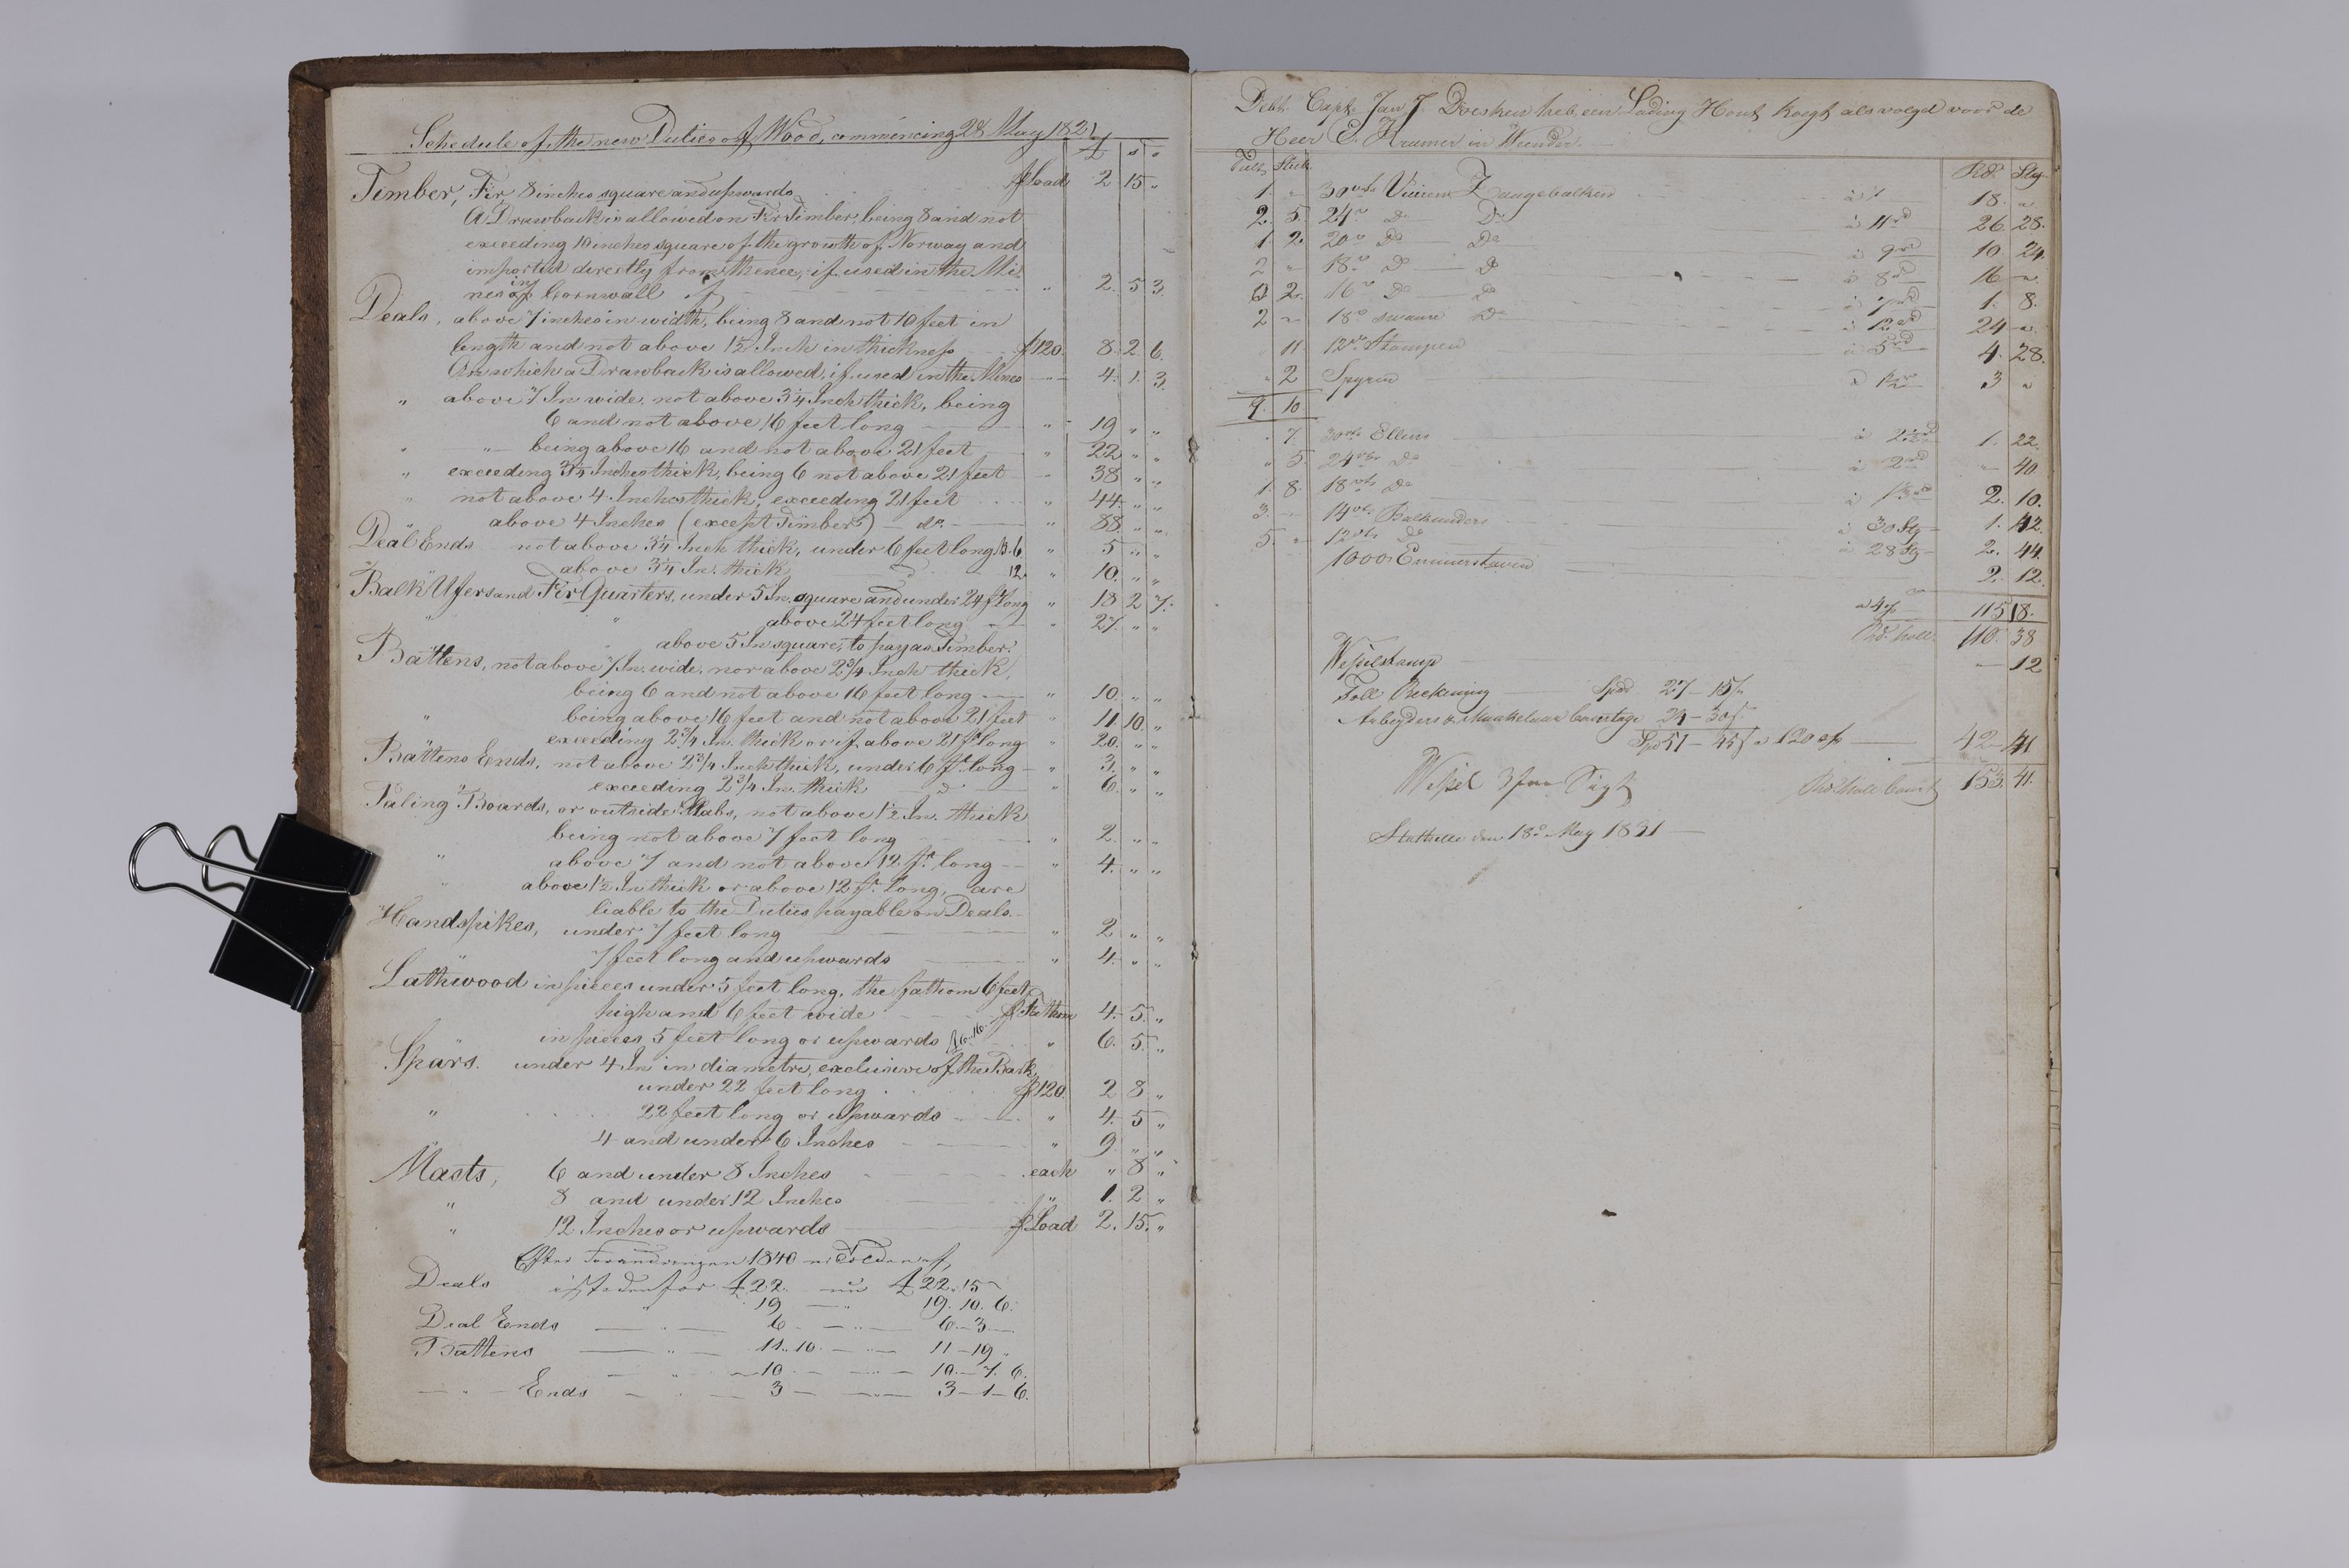 Schedule of the new Duties of Wood, commencing 28 May 1821
£ s "
Timber, Fir, 8 inches square and upwards ⅌ Load 2 15 "
A Drawback is allowed on Fir Timber, being 8 and not
exceeding 10 inches square of the growth of Norway and
imported directly from thence, if used in the Mi-
nes in Cornwall of " 2. 5 3.
Deals, above 7 inches in width, being 8 and not 10 feet in
length and not above 1½ Inch in thickness ⅌ 120. 8. 2. 6.
On which a Drawback is allowed, if used in the Mines " 4. 1. 3.
" above 7 In wide, not above 3¼ Inch thick, being
6 and not above 16 feet long " 19 " "
" " being above 16 and not above 21 feet " 22 " "
" exceeding 3¼ Inches thick, being 6 not above 21 feet " 38 " "
" not above 4 Inches thick, exceeding 21 feet " 44 " "
above 4 Inches (except Timber) do. " 88 " "
Deal Ends not above 3¼ Inch thick, under 6 feet long 6 " 5 " "
" above 3¼ In. thick d. 12. " 10. " "
Balk Ufers and Fir Quarters, under 5 In. square and under 24 ft long " 18 2 7.
" " above 24 feet long " 27 " "
above 5 In square, to pay as Timber.
Battens, not above 7 In. wide, nor above 2¾ Inch thick,
being 6 and not above 16 feet long " 10. " "
" being above 16 feet and not above 21 feet " 11. 10. "
exceeding 2¾ In. thick or if above 21 ft long " 20. " "
Battens Ends, not above 2¾ Inch thick, under 6 ft long " 3. " "
" exceeding 2¾ In. thick d. " 6. " "
Paling Boards, or outside Slabs, not above 1½ In. thick
being not above 7 feet long " 2. " "
" above 7 and not above 12 ft. long " 4. " "
" above 1½ In thick or above 12 ft. long, are
liable to the Duties payable on Deals.
Handspikes, under 7 feet long " 2 " "
" 7 feet long and upwards " 4. " "
Lathwood in pieces under 5 feet long, the fathom 6 feet
high and 6 feet wide ⅌ Fathom 4. 5. "
in pieces 5 feet long or upwards " 6. 5. "
Spars. under 4 In in diametre, exclusive of the Bark,
under 22 feet long ⅌ 120. 2 8 "
" 22 feet long or upwards " 4. 5 "
4 and under 6 Inches " 9 " "
Masts, 6 and under 8 Inches each " 8 "
" 8 and under 12 Inches " 1. 2 "
" 12 Inches or upwards ⅌ Load 2. 15. "
Efter Forandringen 1840
Deals istedenfor £ 22. nu £ 22. 15
" 19 — " 19. 10. 6.
Deal Ends — " — 6 — " — 6 — 3 —
Battens — " — 11. 10. — " — 11 — 19 "
— " — 10 — " — 10. — 7. 6.
— " — Ends — " — 3 — " — 3 — 1 — 6.
Debt. Capt. Jan J. Doesken heb een Lading Hout Kogt als volgd voor de
Heer E. Kramer in Weender.
Tult. Stuk. Rd. Sty.
1. " 30 Vuuren Langebalken à 18. "
2. 5. 24 do Do à 11 rd 26. 28.
1. 2. 20 Do Do à 9 rd 10. 24.
2 " 18 Do Do à 8 rd 16 "
0 2. 16 Do Do à 7 rd 1. 8.
2 " 18 swaare Do à 12 rd 24 "
" 11. 12 Stompen à 5 rd 4. 28.
" 2 Spyren 3 "
9. 10
" 7. 30 Ellern à 2½ rd 1. 22.
" 5. 24 Do à 2 rd " 40
1. 8. 18 do à 1 2. 10.
3. " 14 Balkenders à 30 Sty 1. 42.
5. " 12 do à 28 Sty 2. 44.
1000 Emmerstaven 2. 12.
à 4% 115 18.
Rd. holl. 110. 38
Wesselstamp — 12
Toll Reckening Spd. 27 — 15
Arbeyders & Maakelaar Courtage 24 — 30
Spd 51 — 45 à 120 42 — 41
Wessel 3 Sigt Rd. holl. Court 153. 41.
Stathelle den 18d. May 1821